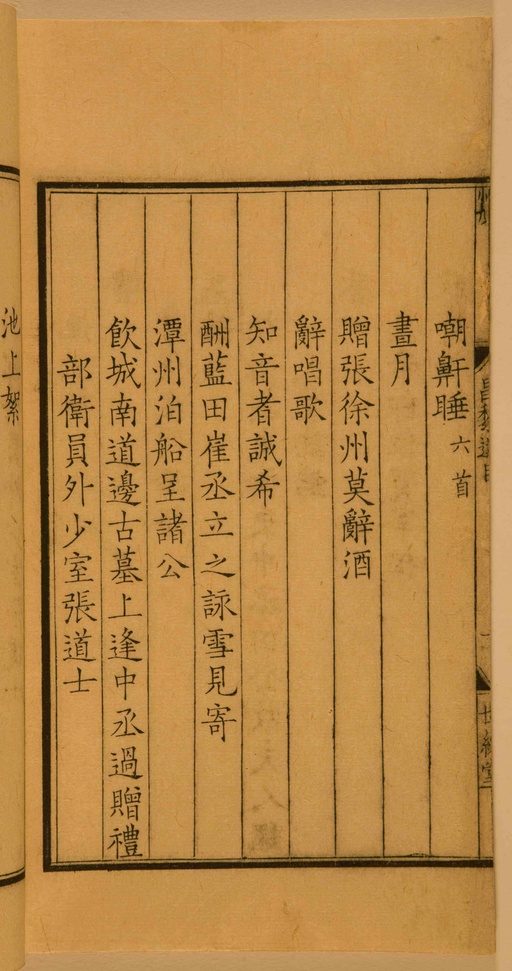 嘲鼾睡 六首
晝月
贈張徐州莫辭酒
辭唱歌
知音者誠希
酬藍田崔丞立之詠雪見寄
潭州泊船呈諸公
飮城南道邊古墓上逢中丞過贈禮
部衛員外少室張道士
池上絮